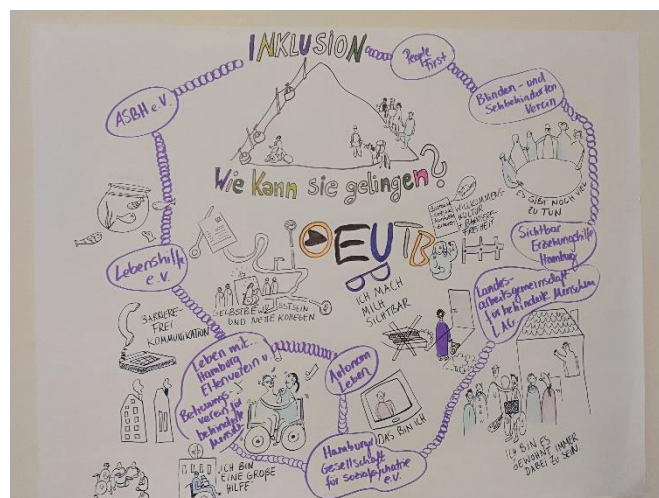 INKLUSION
People
First
Blinden- und
Sehbehinderten
Verein
ASBH e.V.
Wie kann sie gelingen?
ES GIBT NOCH VIEL
ZU TUN
WILLKOMMENS-
KULTUR
+ BARRIERE-
FREIHEIT
EUTB
Sichtbar
Erziehungshilfe
Hamburg
Lebenshilfe
e.V.
ICH MACH
MICH
SICHTBAR
Landes-
arbeitsgemeinschaft
für behinderte Menschen
LAG
SELBSTBEWUSSTSEIN
UND NETTE KOLLEGEN
BARRIERE-
FREI
KOMMUNIKATION
Leben mit
Hamburg
Elternverein u.
Betreuungs-
verein für
behinderte
Menschen
Autonom
Leben
DAS BIN ICH
Hamburger
Gesellschaft
für soziale
e.V.
ICH BIN
EINE GROßE
HILFE
ICH BIN ES
GEWOHNT IMMER
DABEI ZU SEIN